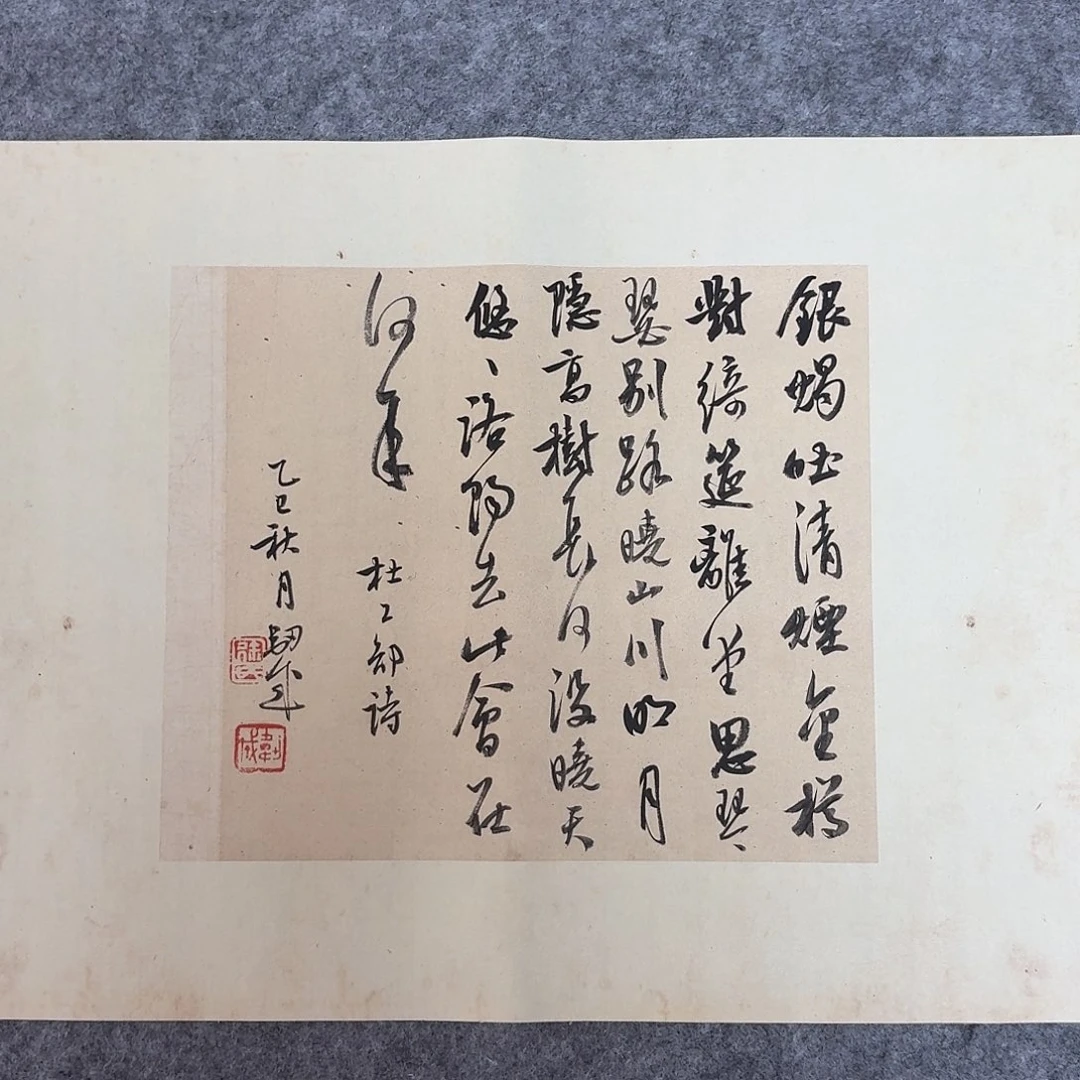 銀燭吐清煙金樽
對綺筵離堂思琴
瑟別路曉山川明月
隱高樹長河沒曉天
悠、洛陽去此會在
何年
杜工部詩
乙巳秋月